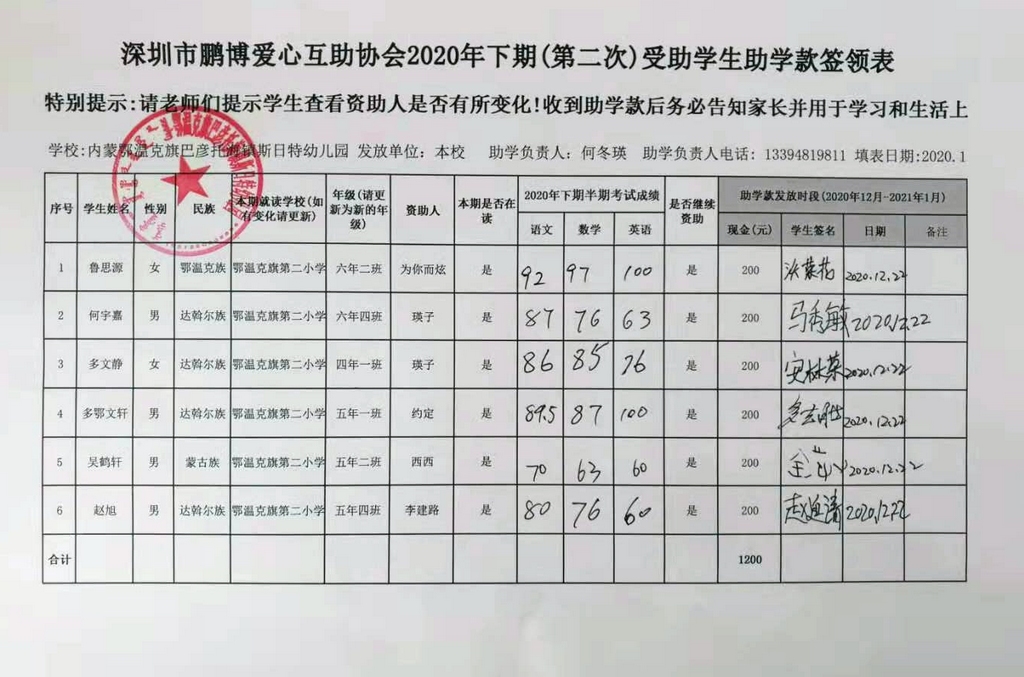 深圳市鹏博爱心互助协会2020年下期(第二次)受助学生助学款签领表
特别提示:请老师们提示学生查看资助人是否有所变化!收到助学款后务必告知家长并用于学习和生活上
学校:内蒙鄂温克旗巴彦托海镇斯日特幼儿园 发放单位: 本校 助学负责人: 何冬瑛 助学负责人电话: 13394819811 填表日期:2020.1
序号 学生姓名 性别 民族 本期就读学校(如有变化请更新) 年级(请更新为新的年级) 资助人 本期是否在读 2020年下期半期考试成绩 是否继续资助 助学款发放时段(2020年12月-2021年1月)
语文 数学 英语 现金(元) 学生签名 日期 备注
1 鲁思源 女 鄂温克族 鄂温克旗第二小学 六年二班 为你而炫 是 92 97 100 是 200 2020.12.22
2 何宇嘉 男 达斡尔族 鄂温克旗第二小学 六年四班 瑛子 是 87 76 63 是 200 马秀敏 2020.12.22
3 多文静 女 达斡尔族 鄂温克旗第二小学 四年一班 瑛子 是 86 85 76 是 200 2020.12.22
4 多鄂文轩 男 达斡尔族 鄂温克旗第二小学 五年一班 约定 是 89.5 87 100 是 200 2020.12.22
5 吴鹤轩 男 蒙古族 鄂温克旗第二小学 五年二班 西西 是 70 63 60 是 200 2020.12.22
6 赵旭 男 达斡尔族 鄂温克旗第二小学 五年四班 李建路 是 80 76 60 是 200 2020.12.22
合计 1200